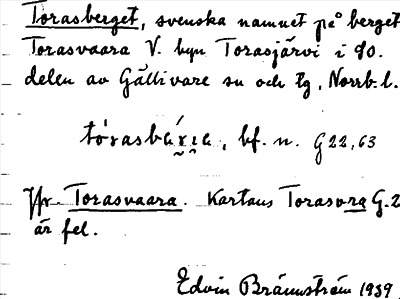 Torasberget, svenska namnet på berget
Torasvaara V. byn Torasjärvi i SO.
delen av Gällivare sn och tg, Norrb. l.
bf. n. G22,63
Jfr Torasvaara. Kartans Torasvra G.2
är fel.
Edvin Brännström 1939.